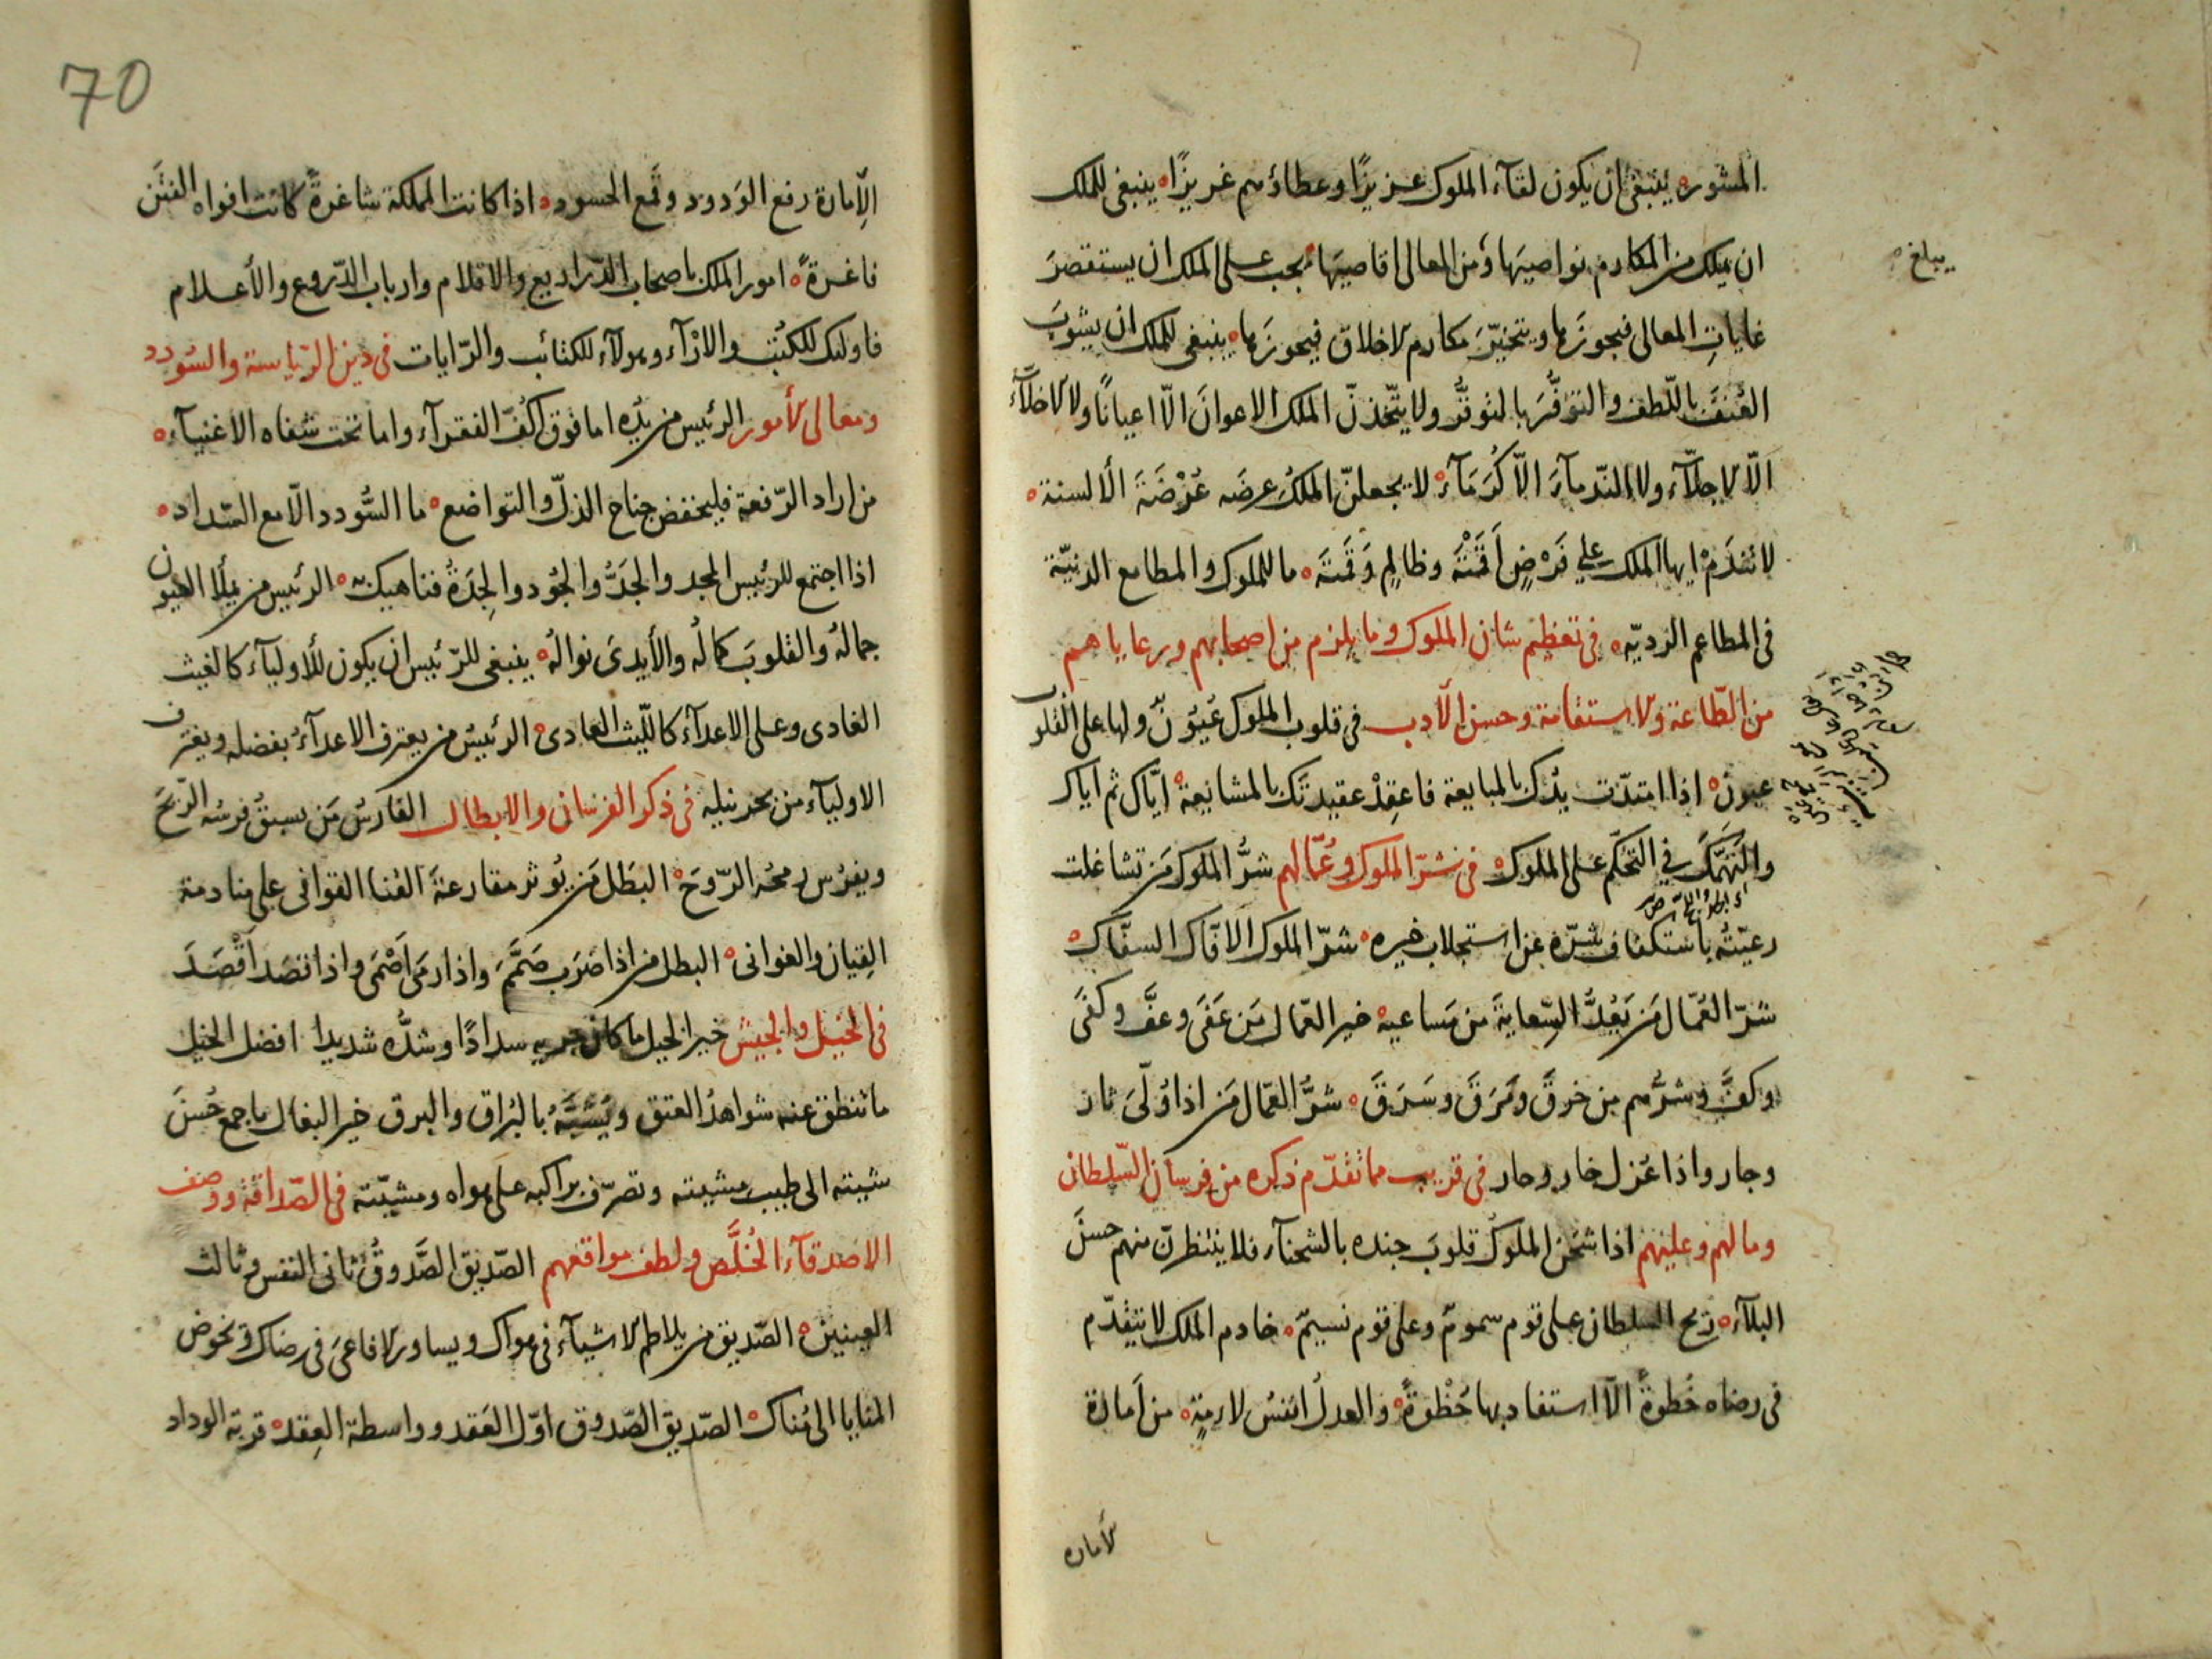 المشوره ينبغى ان يكون لقآء الملوك عزيزًا وعطاؤهم غريزًا ينبغى للملك
ان يملك من المكارم نواصيَها ومن المعالى اقاصيَها يجب على الملك ان يستقصرَ
يبلغ
غاياتِ المعالى فيجوزَها ويتخيّرَ مكارم الاخلاق فيحوزَها ينبغى للملك ان يشوبَ
العُنفَ باللّطف والتوفُّرَ بالتوقُّر ولا يتّخذنّ الملك الاعوانَ الّا اعيانًا ولا الاخلآّءَ
الّا الاجلّآء ولا النّدمآءَ الّا كُرَمَآءَ لا يجعلنّ الملكُ عِرضَه عُرْضَةَ الألسنة
لا تندَمْ ايها الملك على فَرْضٍ اَقَمْتَه وظالمٍ وَقَمْتَه ما للملوك والمطامع الدنيّة
فى المطاعم الرديّه فى تعظيم شان الملوك وما يلزم من اصحابهم ورعاياهم
من الطّاعة والاستقامة وحسن الأدب فى قلوب الملوك عُيُوْنٌ ولها على القلوب
عيون اذا امتدّت يدُك بالمبايعة فاعقِدْ عقيدتَك بالمشايعة ايّاك ثم اياك
والتَهَتُّكَ فى التحكّم على الملوك فى شرّ الملوك وعُمّالهم شرُّ الملوك مَن تشاغلت
رعيّتُه باستكفاف شرّه عن استجلاب خيره شرّ الملوك الافّاك السفّاك
شرّ العُمّال مَن يَعُدُّ السِّعايةَ من مَساعيه خير العمّال مَن عَفَى وعفَّ وكفَى
وكفَّ وشرُّهم من خرقَ ومَرَقَ وسَرَقَ شرُّ العمّال مَن اذا وُلّىَ ثار
وجار واذا عُزل خار وحار فى قريب مما تقدّم ذكره من فرسان السّلطان
وما لهم وعليهم اذا شحَن الملوكُ قلوبَ جنده بالشحنآء فلا ينتظرنّ منهم حسنَ
البلآء ريح السلطان على قوم سمومٌ وعلى قوم نسيمٌ خادم الملك لا يتقدّم
فى رضاه خُطوةً الّا استفاد بها حُظْوةً والعدلُ انفسُ لا من أمارة
الامارة
70
الإمارة رفع الوَدود وقمع الحسود اذا كانت المملكة شاغرةً كانت افواه الفتَن
فاغرةً امور الملك باصحاب الدّراريع والاقلام وارباب الدّروع والأعلام
فاولئك للكُتُب والارْآء وهولآء للكتائب والرّايات فى الرّياسة والسّودد
ومعالى الأمور الرئيس من يدُه اما فوق اكُفّ الفقرآء واما تحت شفاه الاغنيآء
من اراد الرّفعة فليخفض جناح الذلّ والتواضع ما السُّودد الّا مع السّداد
اذا اجتمع للرئيس المجد والجَدُّ والجُود والجِدَةُ فناهيك به الرئيس من يملأ العيون
جمالُه والقلوبَ كمالُه والأيدىَ نوالُه ينبغى للرّئيس ان يكون للأوليآء كالغيث
الغادى وعلى الاعدآء كاللّيث العادى الرئيسُ من يعترف الاعدآءُ بفضله ويغترف
الاوليآء من بحر نيله فى ذكر الفرسان والابطال الفارسُ مَن يسبقُ فرسُه الرّيحَ
ويفرُس رمحُه الرّوحَ البَطل مَن يُوثر مقارعةَ القنا القوافى على منادمة
القِيان والغوانى البطل من اذا ضرَب صَمَّمَ واذا رمَى اَصْمَى واذا قصَد اَقْصَدَ
فى الخيل والجيش خير الخيل ما كان جريه سدادًا وشدُّه شديدا افضل الخيل
ما تنطق عنه شواهدُ العتق ويُشبَّهُ بالبُراق والبرق خير البغال ما جمع حُسنَ
شيته الى طيب مشيته وتصرّف براكبه على هواه ومشيّته فى الصّداقة ووصف
الاصدقآء الخُلَّص ولطف مواقعهم الصّديق الصَّدوقُ ثانى النفس وثالث
العينين الصّديق من يلاطم الاشيآء فى هواك ويساور الافاعىَ فى رضاك ويخوض
المنايا الى مُناك الصّديق الصّدوق اوّل العَقد وواسطة العِقد قربة الوداد